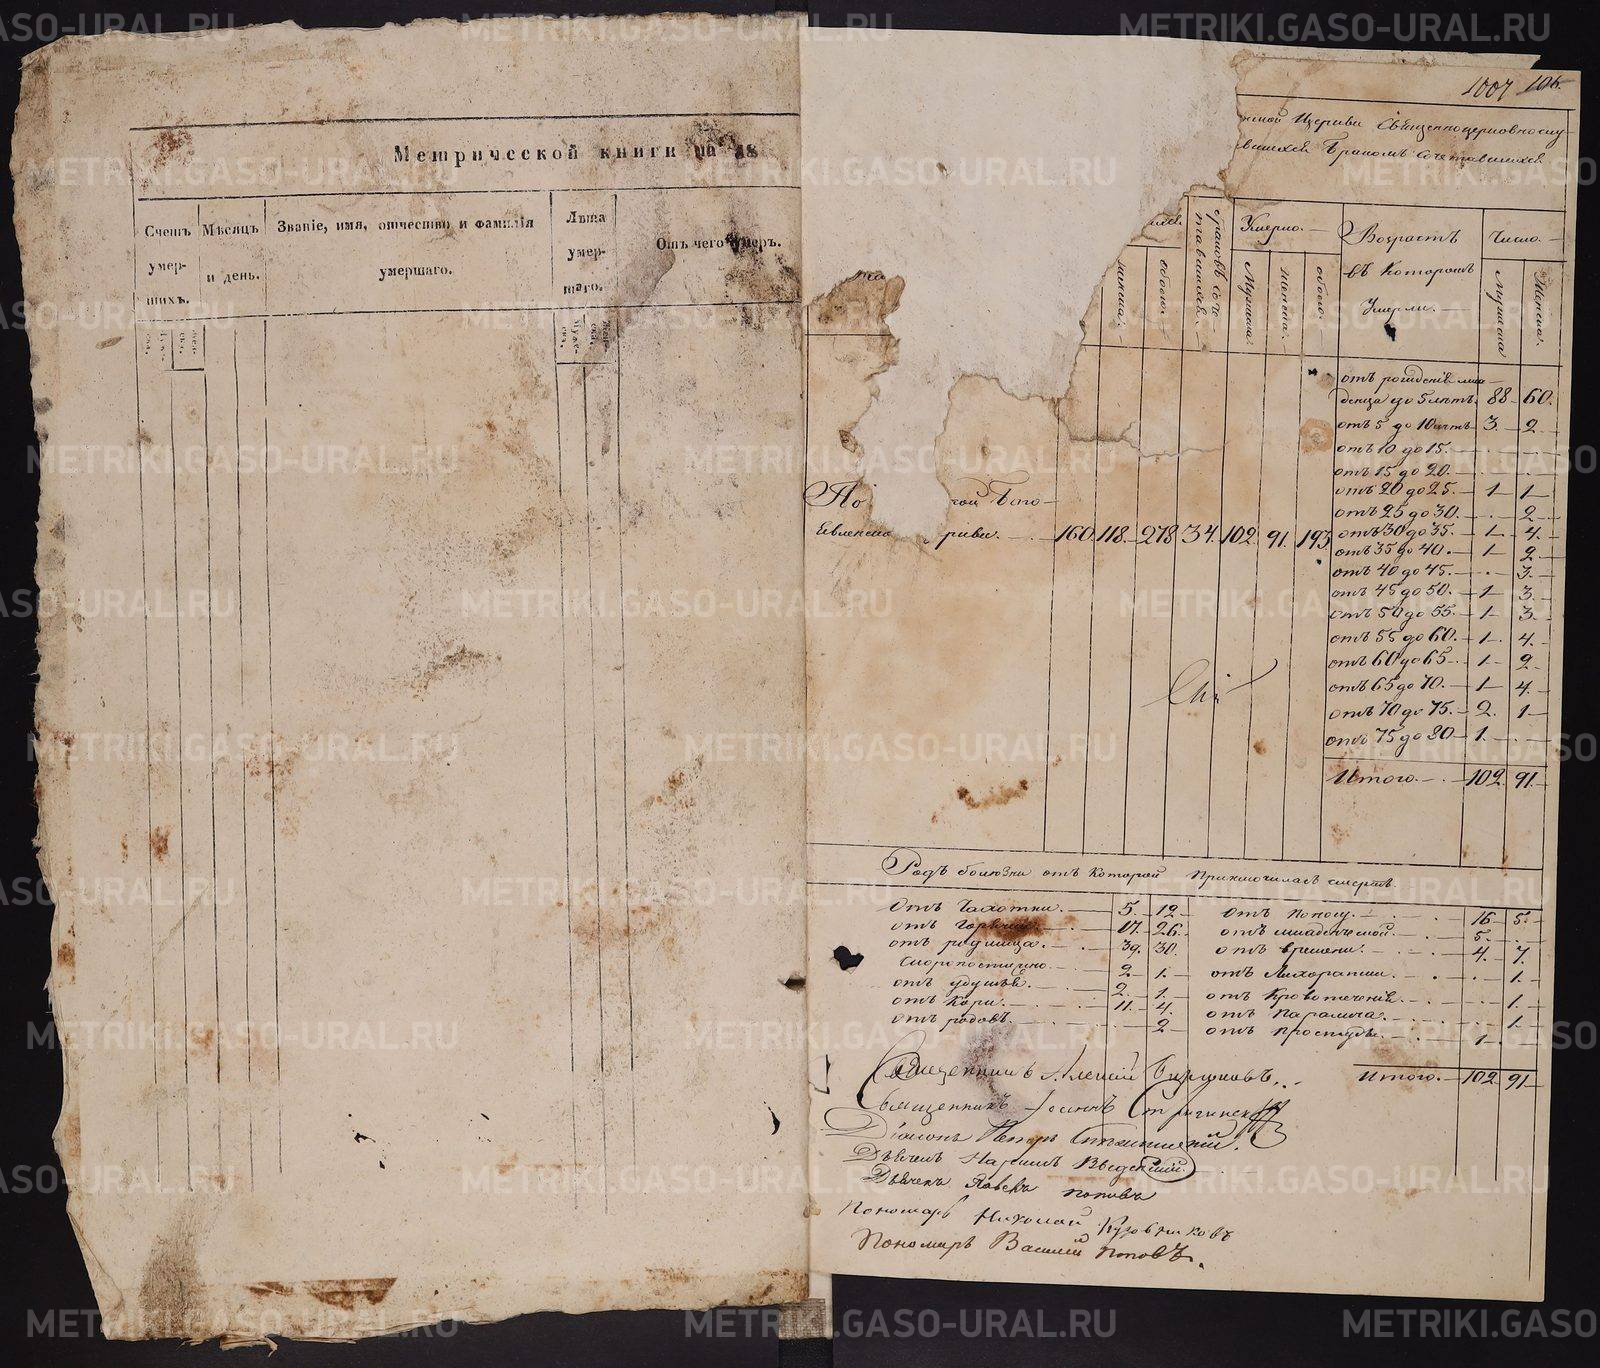 Метрической книги на 18
Счетъ умер-шихъ.
Мѣсяцъ и день.
Званіе, имя, отчество и фамилія умершаго.
Лѣта умер-шаго.
Отъ чего умеръ.
1007 106.
Церкви Священноцерковнослу-
вшихся Бракомъ сочетавшихся
Умерло.
Возрастъ въ которомъ Умерли.
Число.
обоего. браковъ соче-тавшихся. обоего.
отъ рожденія мла-
денца до 5 лѣтъ. 88 60.
отъ 5 до 10 лѣтъ 3. 2
отъ 10 до 15.
отъ 15 до 20.
отъ 20 до 25. 1 1
отъ 25 до 30. 2
отъ 30 до 35. 1 4.
отъ 35 до 40. 1 2
отъ 40 до 45. 3.
отъ 45 до 50. 1 3
отъ 50 до 55. 1 3
отъ 55 до 60. 1 4.
отъ 60 до 65 1 2
отъ 65 до 70. 1 4.
отъ 70 до 75. 2. 1
отъ 75 до 80 1.
Итого. 102 91.
По Бого-
160 118. 278 34. 102 91. 193
Родъ болѣзни отъ которой приключилась смерть.
Отъ Чахотки. 5. 12
отъ Горячки. 17. 26.
отъ родимца. 39. 30.
Скоропостижно. 2 1.
отъ удушья. 2. 1.
отъ Кори. 11. 4.
отъ родовъ. 2
отъ поносу. 16 5.
отъ младенческой. 5.
отъ времени. 4. 7.
отъ Лихорадки. 1.
отъ Кровотеченія. 1.
отъ Паралича. 1.
отъ простуды. 1
Итого. 102 91
Священникъ Алексій
Священникъ Іоаннъ
Діаконъ Петръ
Дьячекъ Введенскій
Дьячекъ Яковъ Поповъ
Пономарь Николай Кузовниковъ
Пономарь Василій Поповъ.
METRIKI.GASO-URAL.RU